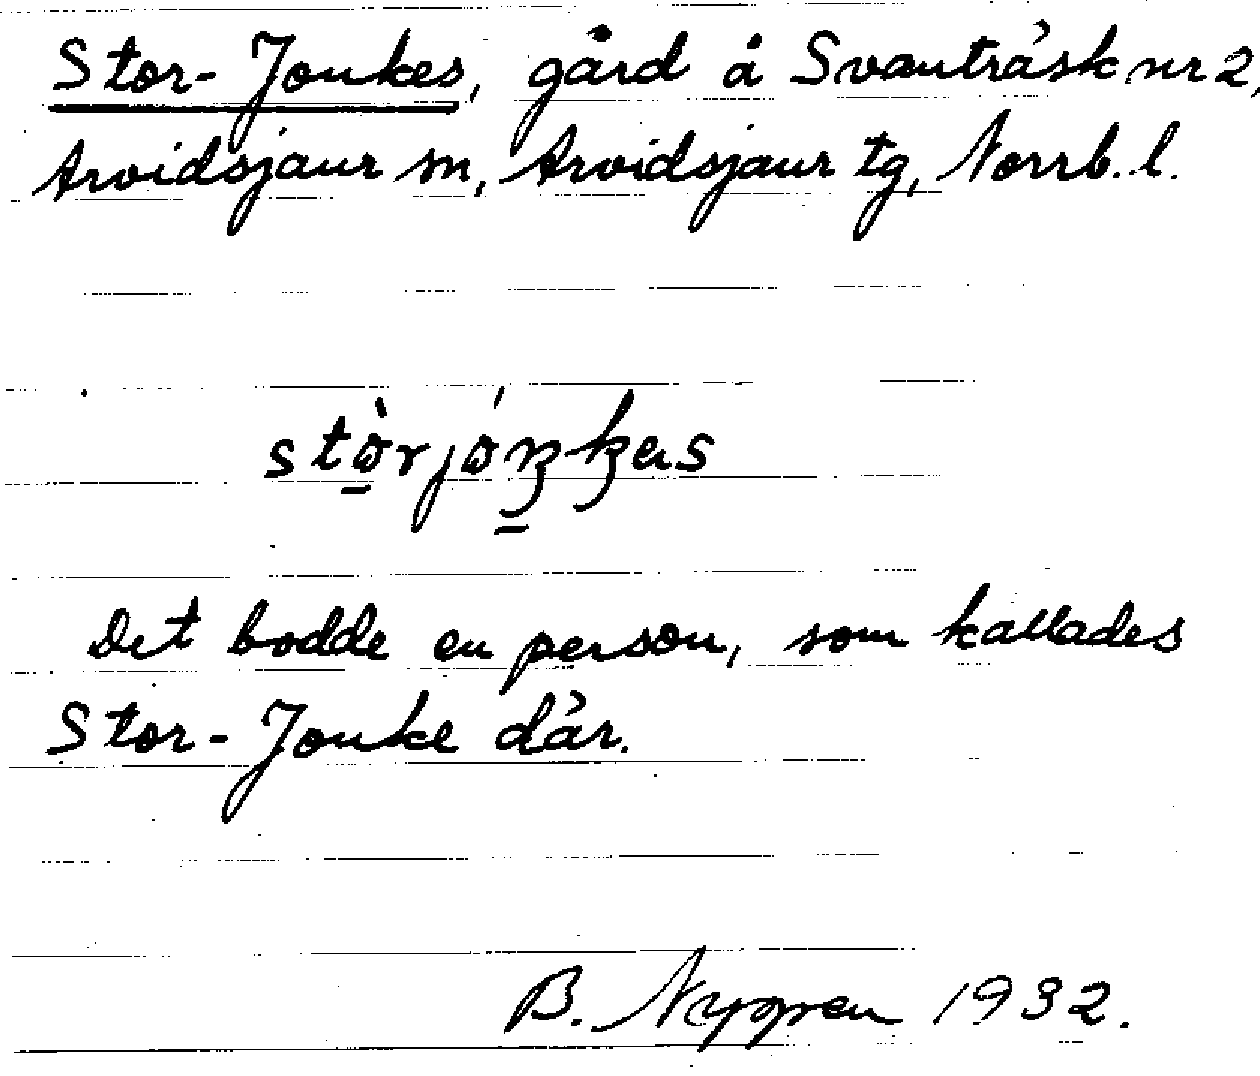 Stor-Jonkes, gård å Svanträsk nr 2,
Arvidsjaur sn, Arvidsjaur tg, Norrb. l.
Det bodde en person, som kallades
Stor-Jonke där.
B. Nygren 1932.